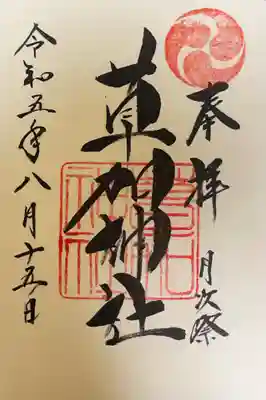 奉拝 月次祭
草加神社
令和五年八月十五日